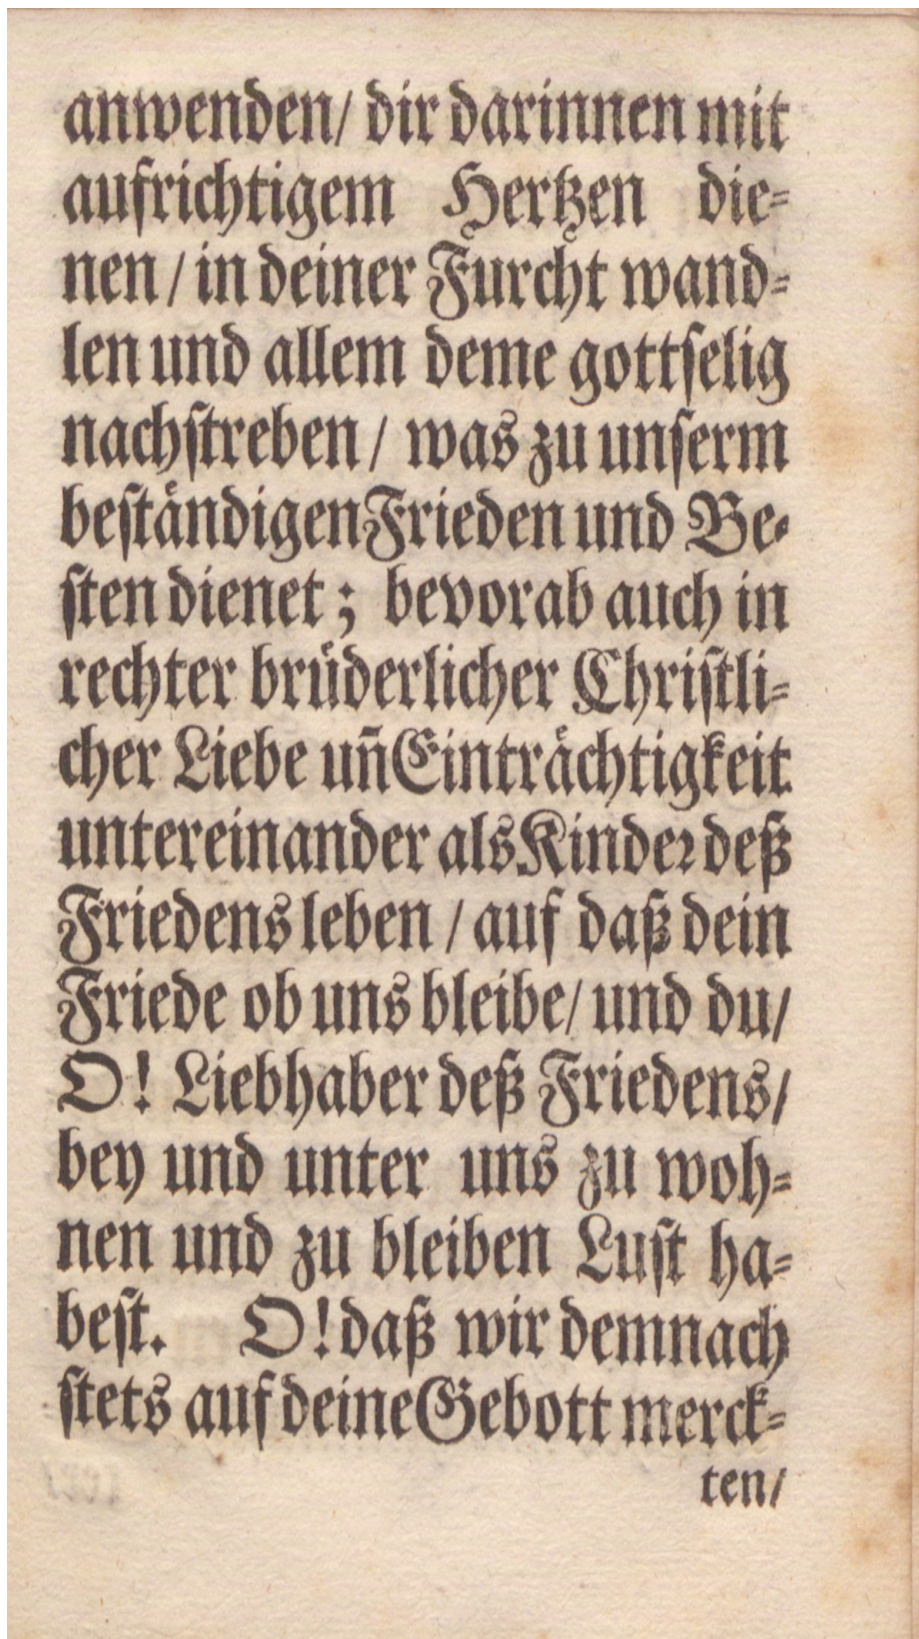 anwenden/ dir darinnen mit
aufrichtigem Hertzen die-
nen / in deiner Furcht wand-
len und allem deme gottselig
nachstreben / was zu unserm
beständigen Frieden und Be-
sten dienet; bevorab auch in
rechter brüderlicher Christli-
cher Liebe uñ Einträchtigkeit
untereinander als Kinder deß
Friedens leben / auf daß dein
Friede ob uns bleibe/ und du/
O! Liebhaber deß Friedens/
bey und unter uns zu woh-
nen und zu bleiben Lust ha-
best. O! daß wir demnach
stets auf deine Gebott merck-
ten/